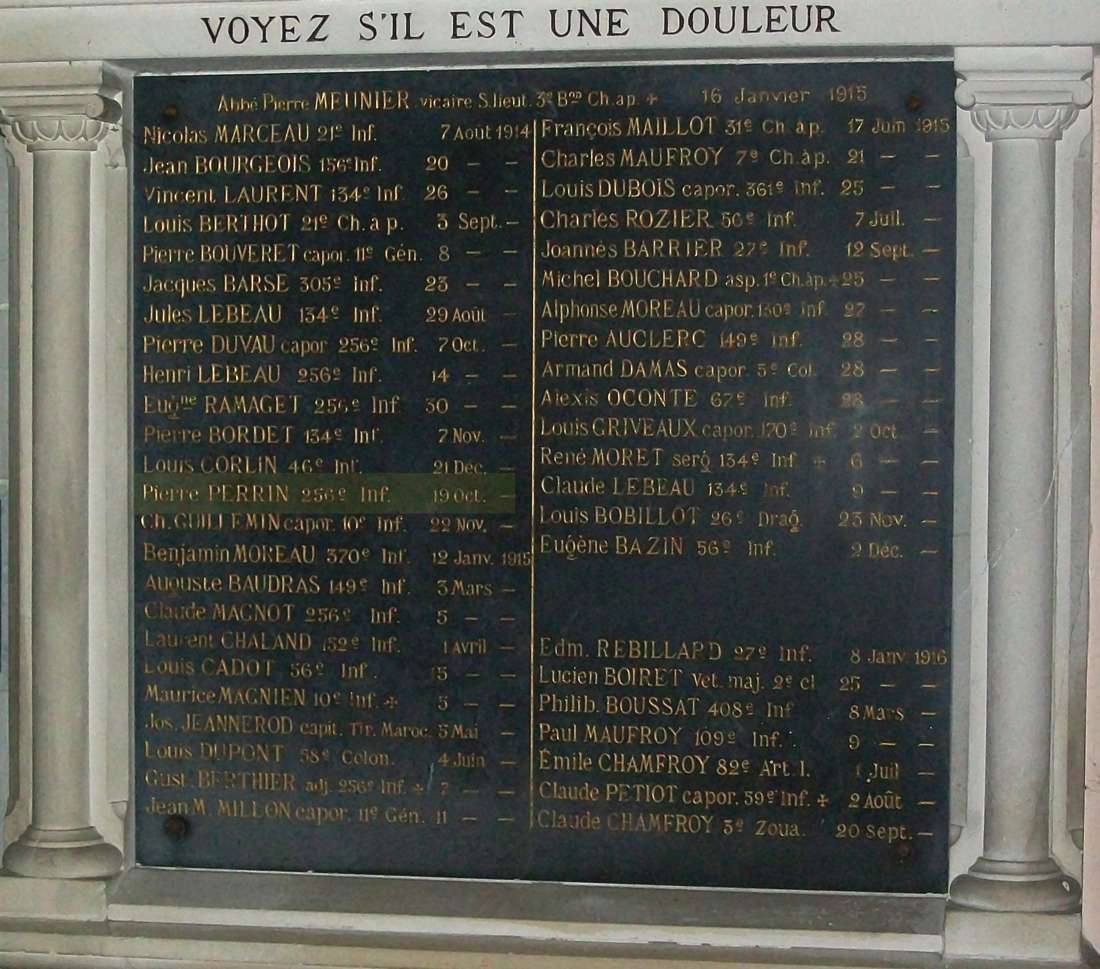 VOYEZ S'IL EST UNE DOULEUR
Abbé Pierre MEUNIER vicaire S.lieut. 3e Bon Ch.ap. + 16 Janvier 1915
Nicolas MARCEAU 21e Inf. 7 Août 1914
Jean BOURGEOIS 156e Inf. 20 — —
Vincent LAURENT 134e Inf 26 — —
Louis BERTHOT 21e Ch. à p. 3 Sept. —
Pierre BOUVERET capor. 11e Gén. 8 — —
Jacques BARSE 305e Inf. 23 — —
Jules LEBEAU 134e Inf. 29 Août —
Pierre DUVAU capor 256e Inf. 7 Oct. —
Henri LEBEAU 256e Inf. 14 — —
Eugne RAMAGET 256e Inf 30 — —
Pierre BORDET 134e Inf. 7 Nov. —
Louis CORLIN 46e Inf. 21 Déc. —
Pierre PERRIN 256e Inf. 19 Oct. —
Ch. GUILLEMIN capor. 10e Inf. 22 Nov. —
Benjamin MOREAU 370e Inf. 12 Janv. 1915
Auguste BAUDRAS 149e Inf. 3 Mars —
Claude MAGNOT 256e Inf. 5 — —
Laurent CHALAND 152e Inf. 1 Avril —
Louis CADOT 56e Inf. 15 — —
Maurice MAGNIEN 10e Inf. + 5 — —
Jos. JEANNEROD capit. Tir. Maroc. 5 Mai —
Louis DUPONT 58e Colon. 4 Juin —
Gust. BERTHIER adj. 256e Inf. + 7 — —
Jean M. MILLON capor. 11e Gén. 11 — —
François MAILLOT 31e Ch à p. 17 Juin 1915
Charles MAUFROY 7e Ch. à p. 21 — —
Louis DUBOIS capor. 361e Inf. 25 — —
Charles ROZIER 56e Inf. 7 Juil. —
Joannès BARRIER 27e Inf. 12 Sept. —
Michel BOUCHARD asp. 1e Ch. à p. + 25 — —
Alphonse MOREAU capor. 130e Inf 27 — —
Pierre AUCLERC 149e Inf. 28 — —
Armand DAMAS capor. 5e Col. 28 — —
Alexis OCONTE 67e Inf. 28 — —
Louis GRIVEAUX capor. 170e Inf 2 Oct. —
René MORET serg 134e Inf + 6 — —
Claude LEBEAU 134e Inf. 9 — —
Louis BOBILLOT 26e Drag. 23 Nov. —
Eugène BAZIN 56e Inf. 2 Déc. —
Edm. REBILLARD 27e Inf. 8 Janv. 1916
Lucien BOIRET Vet. maj. 2e cl 25 — —
Philib. BOUSSAT 408e Inf 8 Mars —
Paul MAUFROY 109e Inf. 9 — —
Émile CHAMFROY 82e Art. l. 1 Juil —
Claude PETIOT capor. 59e Inf. + 2 Août —
Claude CHAMFROY 3e Zoua. 20 Sept. —